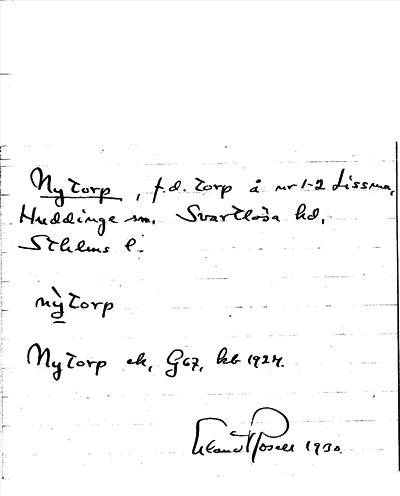 Nytorp, f.d. torp å nr 1-2 Lissma,
Huddinge sn. Svartlösa hd,
Sthlms l.
nỳtorp
Nytorp ek, G67, kb 1924.
1930.